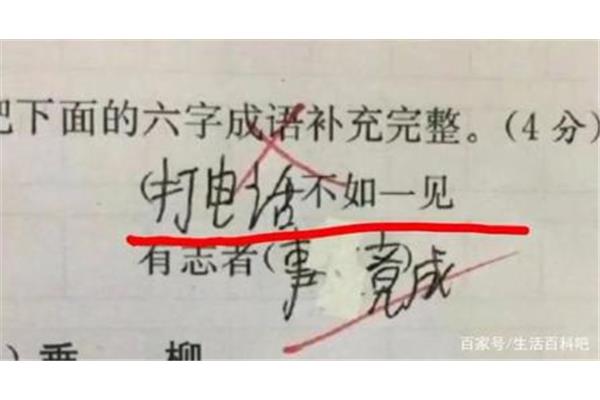 把下面的六字成语补充完整。(4分)
(打电话不如一见
有志者(事 竟成
) 垂 柳
百家号/生活百科吧